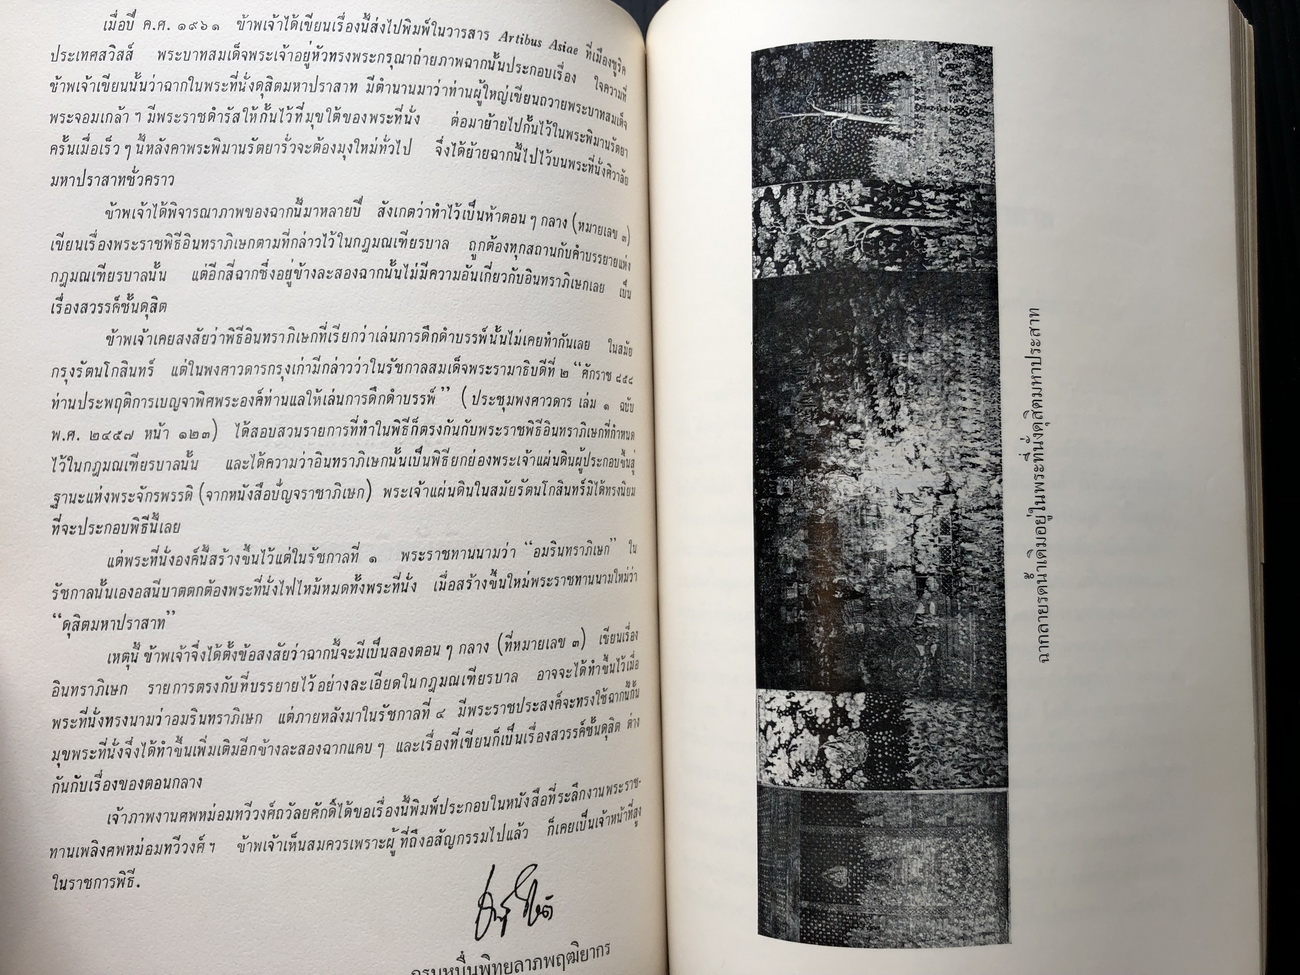 เมื่อปี ค.ศ. ๑๙๖๑ ข้าพเจ้าได้เขียนเรื่องนี้ส่งไปพิมพ์ในวารสาร Artibus Asiae ที่เมืองซูริค
ประเทศสวิสส์ พระบาทสมเด็จพระเจ้าอยู่หัวทรงพระกรุณาถ่ายภาพฉากนั้นประกอบเรื่อง ใจความที่
ข้าพเจ้าเขียนนั้นว่าฉากในพระที่นั่งดุสิตมหาปราสาท มีตำนานมาว่าท่านผู้ใหญ่เขียนถวายพระบาทสมเด็จ
พระจอมเกล้า ฯ มีพระราชดำรัสให้กั้นไว้ที่มุขใต้ของพระที่นั่ง ต่อมาย้ายไปกั้นไว้ในพระพิมานรัตยา
ครั้นเมื่อเร็ว ๆ นี้หลังคาพระพิมานรัตยารั่วจะต้องมุงใหม่ทั่วไป จึงได้ย้ายฉากนี้ไปไว้บนพระที่นั่งศิวาลัย
มหาปราสาทชั่วคราว
ข้าพเจ้าได้พิจารณาภาพของฉากนี้มาหลายปี สังเกตว่าทำไว้เป็นห้าตอน ๆ กลาง (หมายเลข ๓)
เขียนเรื่องพระราชพิธีอินทราภิเษกตามที่กล่าวไว้ในกฎมณเฑียรบาล ถูกต้องทุกสถานกับคำบรรยายแห่ง
กฎมณเฑียรบาลนั้น แต่อีกสี่ฉากซึ่งอยู่ข้างละสองฉากนั้นไม่มีความอันเกี่ยวกับอินทราภิเษกเลย เป็น
เรื่องสวรรค์ชั้นดุสิต
ข้าพเจ้าเคยสงสัยว่าพิธีอินทราภิเษกที่เรียกว่าเล่นการดึกดำบรรพ์นั้นไม่เคยทำกันเลย ในสมัย
กรุงรัตนโกสินทร์ แต่ในพงศาวดารกรุงเก่ามีกล่าวว่าในรัชกาลสมเด็จพระรามาธิบดีที่ ๒ “ศักราช ๘๕๘
ท่านประพฤติการเบญจาพิศพระองค์ท่านแลให้เล่นการดึกดำบรรพ์” (ประชุมพงศาวดาร เล่ม ๑ ฉบับ
พ.ศ. ๒๔๕๗ หน้า ๑๒๓) ได้สอบสวนรายการที่ทำในพิธีก็ตรงกันกับพระราชพิธีอินทราภิเษกที่กำหนด
ไว้ในกฎมณเฑียรบาลนั้น และได้ความว่าอินทราภิเษกนั้นเป็นพิธียกย่องพระเจ้าแผ่นดินผู้ประกอบขึ้นสู่
ฐานะแห่งพระจักรพรรดิ (จากหนังสือปัญจราชาภิเษก) พระเจ้าแผ่นดินในสมัยรัตนโกสินทร์มิได้ทรงนิยม
ที่จะประกอบพิธีนี้เลย
แต่พระที่นั่งองค์นี้สร้างขึ้นไว้แต่ในรัชกาลที่ ๑ พระราชทานนามว่า “อมรินทราภิเษก” ใน
รัชกาลนั้นเองอสนีบาตตกต้องพระที่นั่งไฟไหม้หมดทั้งพระที่นั่ง เมื่อสร้างขึ้นใหม่พระราชทานนามใหม่ว่า
“ดุสิตมหาปราสาท”
เหตุนี้ ข้าพเจ้าจึงได้ตั้งข้อสงสัยว่าฉากนี้จะมีเป็นสองตอน ๆ กลาง (ที่หมายเลข ๓) เขียนเรื่อง
อินทราภิเษก รายการตรงกับที่บรรยายไว้อย่างละเอียดในกฎมณเฑียรบาล อาจจะได้ทำขึ้นไว้เมื่อ
พระที่นั่งทรงนามว่าอมรินทราภิเษก แต่ภายหลังมาในรัชกาลที่ ๔ มีพระราชประสงค์จะทรงใช้ฉากนี้กั้น
มุขพระที่นั่งจึงได้ทำขึ้นเพิ่มเติมอีกข้างละสองฉากแคบ ๆ และเรื่องที่เขียนก็เป็นเรื่องสวรรค์ชั้นดุสิต ต่าง
กันกับเรื่องของตอนกลาง
เจ้าภาพงานศพหม่อมทวีวงศ์ถวัลยศักดิ์ได้ขอเรื่องนี้พิมพ์ประกอบในหนังสือที่ระลึกงานพระราช-
ทานเพลิงศพหม่อมทวีวงศ์ ฯ ข้าพเจ้าเห็นสมควรเพราะผู้ที่ถึงอสัญกรรมไปแล้ว ก็เคยเป็นเจ้าหน้าที่สูง
ในราชการพิธี.
กรมหมื่นพิทยลาภพฤฒิยากร
ฉากลายรดน้ำเดิมอยู่ในพระที่นั่งดุสิตมหาประสาท